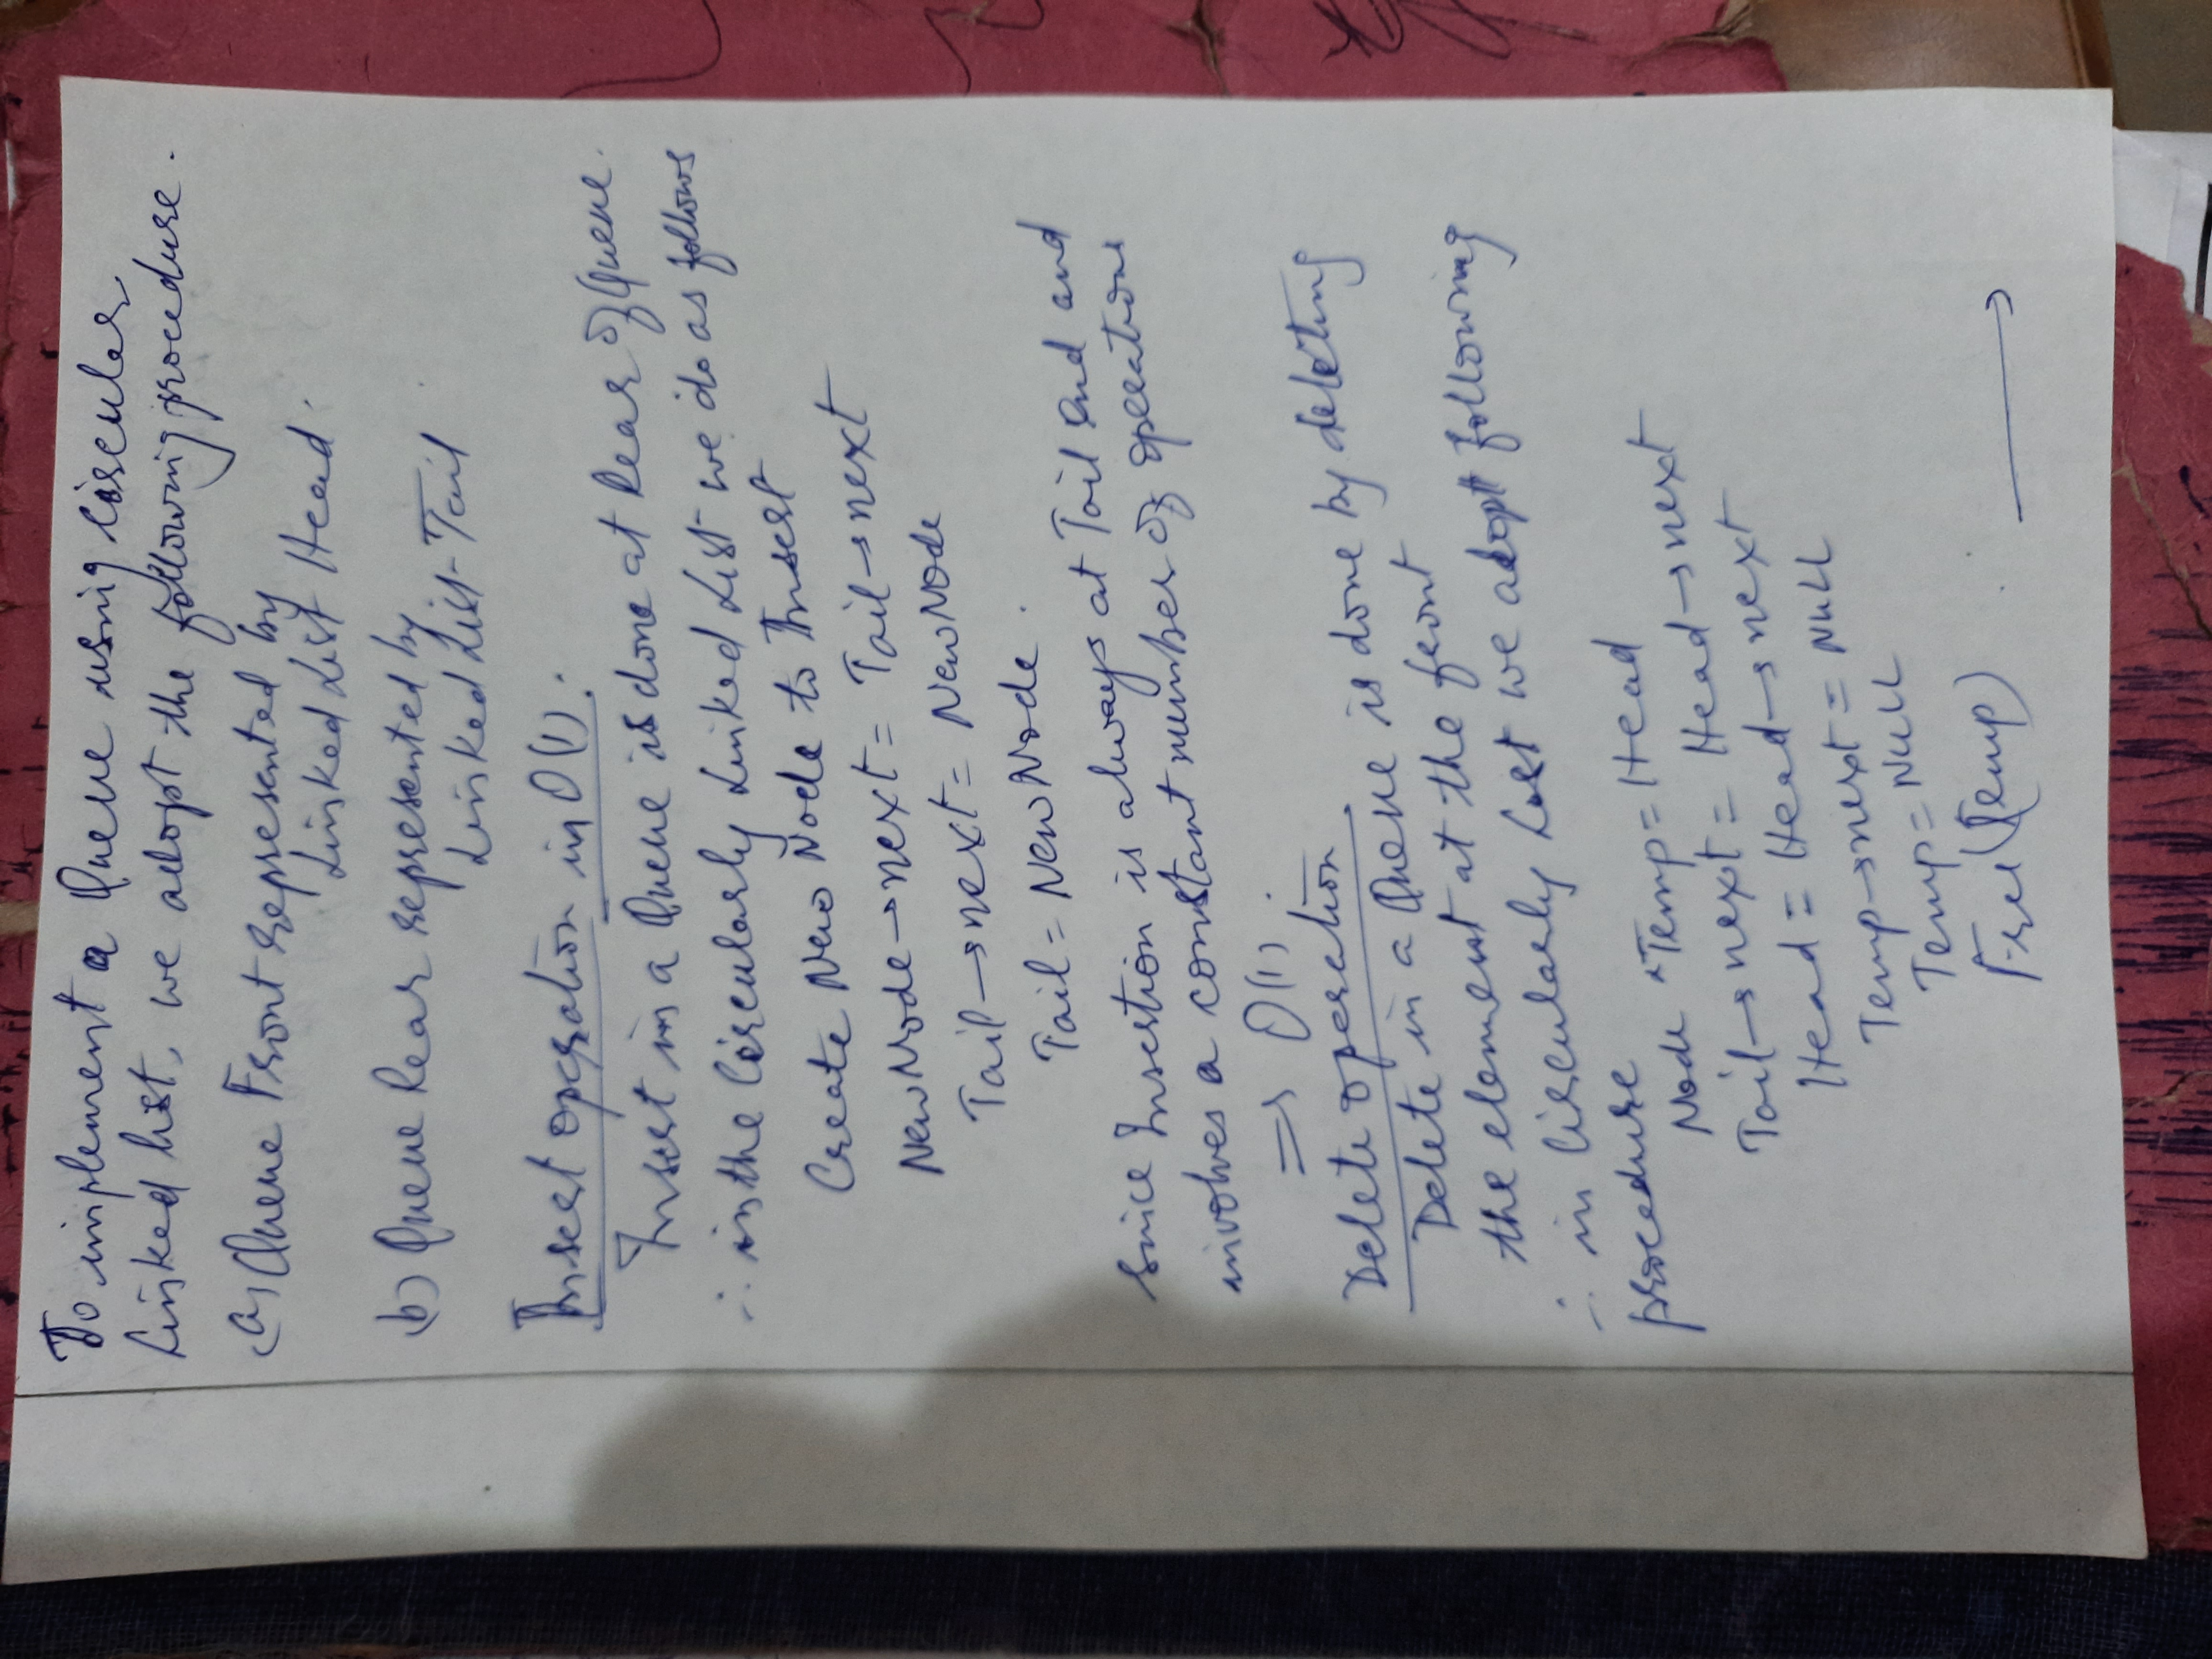 To implement a Queue using Circular
Linked list, we adopt the following procedure.
(a) Queue Front represented by
Linked List Head.
(b) Queue Rear represented by
Linked List Tail
Insert operation in O(1):
Insert in a Queue is done at Rear of Queue.
∴ in the Circularly Linked List we do as follows
Create New Node to Insert
NewNode→next = Tail→next
Tail→next = NewNode
Tail = NewNode.
Since Insertion is always at Tail end and
involves a constant number of operations
⇒ O(1).
Delete operation
Delete in a Queue is done by deleting
the element at the front
∴ in Circularly List we adopt following
procedure
Node *Temp = Head
Tail→next = Head→next
Head = Head→next
Temp→next = NULL
Temp = NULL
Free(Temp)
→